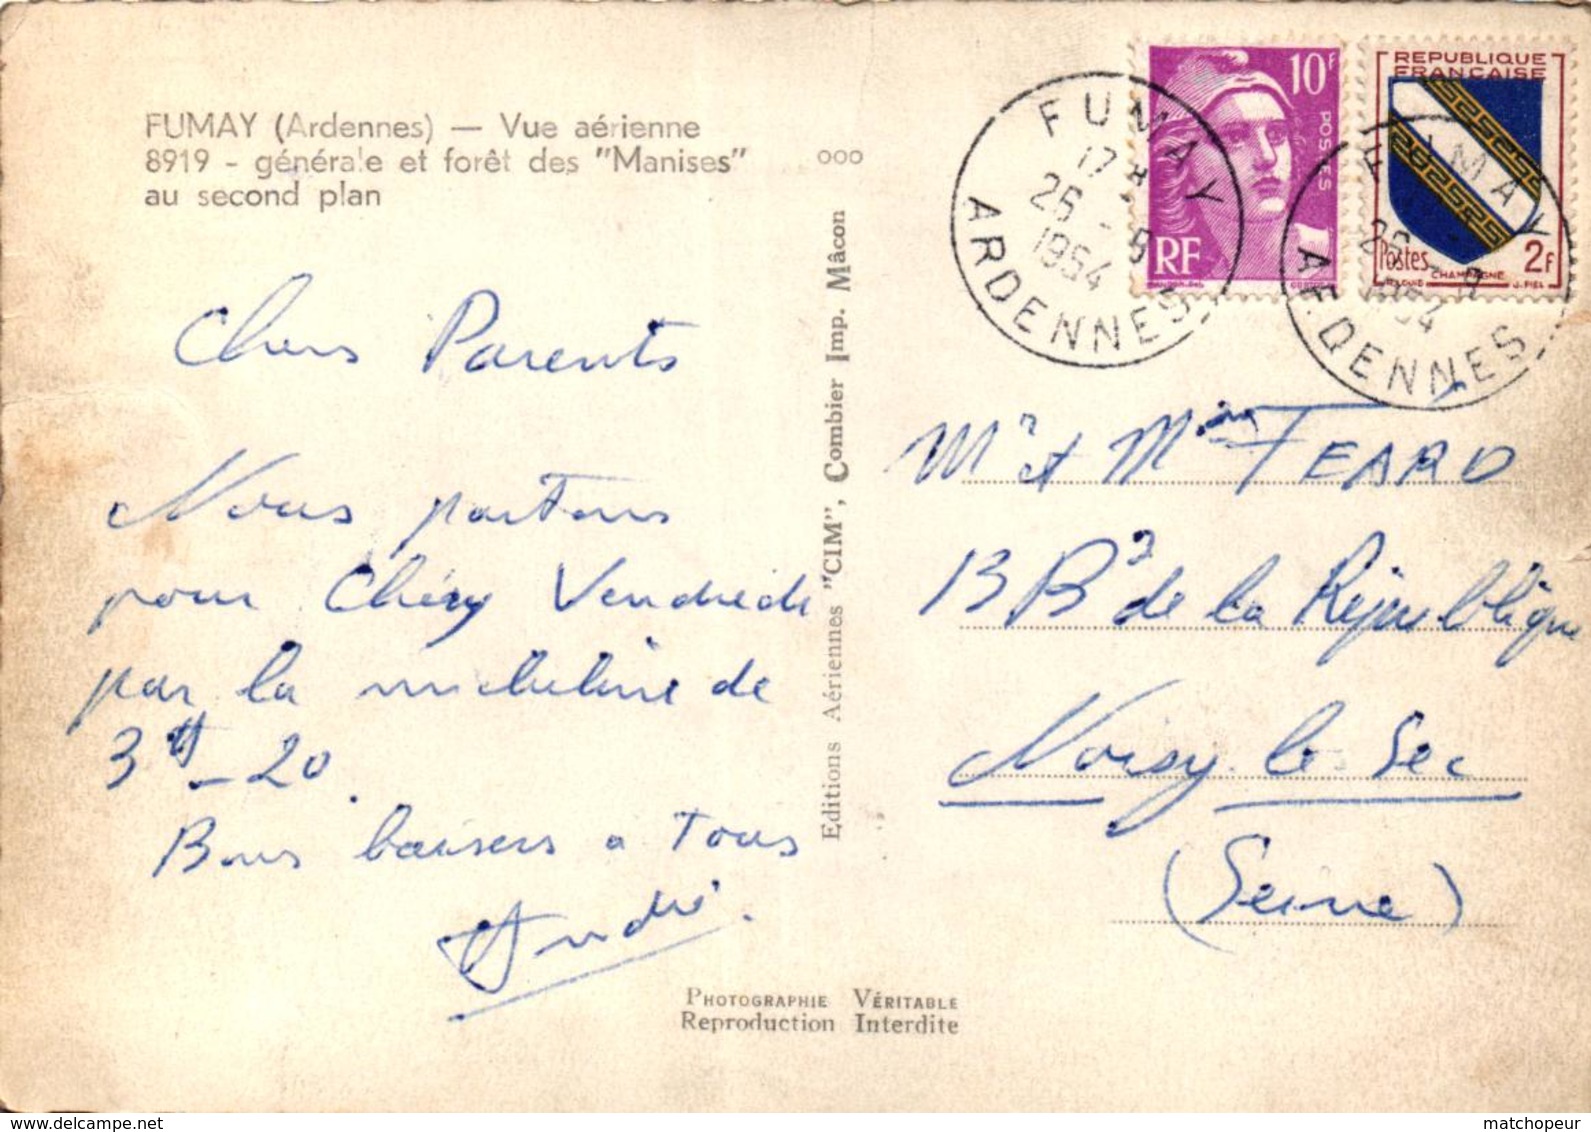 FUMAY (Ardennes) — Vue aérienne
8919 - générale et forêt des "Manises"
au second plan
ooo
Chers Parents
Nous partons
pour Chéry Vendredi
par la micheline de
3H - 20.
Bons baisers a Tous
André.
Editions Aériennes "CIM", Combier Imp. Mâcon
PHOTOGRAPHIE VÉRITABLE
Reproduction Interdite
10F
POSTES
RF
REPUBLIQUE
FRANÇAISE
Postes
CHAMPAGNE
2F
J. PIEL
FUMAY
17H
26 - 8
1954
ARDENNES
FUMAY
26 - 8
1954
ARDENNES
Mr et Mme FEARD
13 Bd de la République
Noisy le Sec
(Seine)
matchopeur
www.delcampe.net